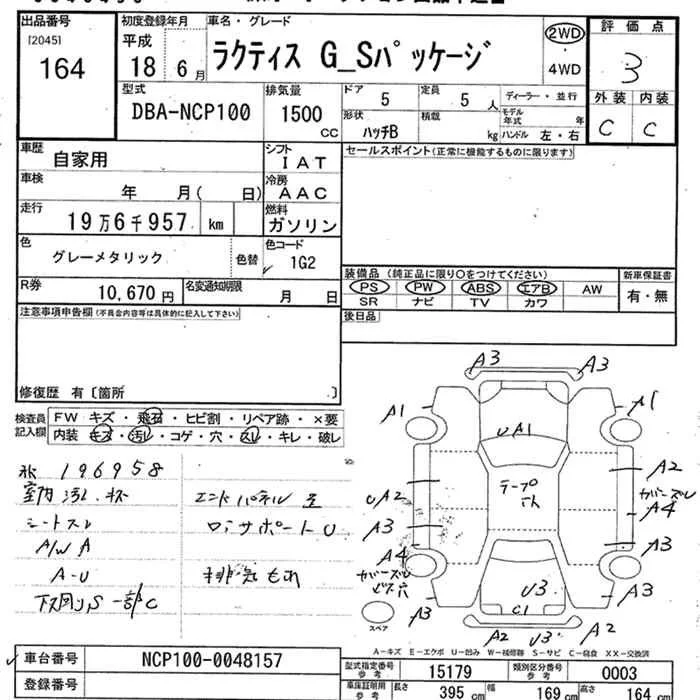 出品番号
[2045]
164
初度登録年月
平成
18 6月
車名・グレード
ラクティス G_Sパッケージ
2WD
・
4WD
評価点
3
外装 内装
C C
型式
DBA-NCP100
排気量
1500
CC
ドア
5
定員
5 人
ディーラー・並行
形状
ハッチB
積載
kg
モデル年式 年
ハンドル 左・右
車歴
自家用
シフト
IAT
セールスポイント(正常に機能するものに限ります)
車検
年 月( 日)
冷房
AAC
走行
19万6千957 km
燃料
ガソリン
色
グレーメタリック
色替
色コード
1G2
R券
10,670円
名変通知期限
月 日
装備品(純正品に限り○をつけてください)
PS PW ABS エアB AW
SR ナビ TV カワ
新車保証書
有・無
注意事項申告欄(不具合内容等は具体的に記入して下さい)
後日品
修復歴 有〔箇所 .〕
検査員記入欄
FW キズ・飛石・ヒビ割・リペア跡・×要
内装 キズ・汚レ・コゲ・穴・スレ・キレ・破レ
196958
室内汚レ.キズ
シートスレ
A/W A
A-U
下回りS 一部C
エンドパネル
ロアサポートU
排気もれ
A3 A3
A1 A1
UA1
A2
UA2
テープ
カバーズレ
A4
A3
A3
A4
カバーズレ
ビス穴
A3
U3
C1
A3
A2 U3 A2
スペア
A-キズ E-エクボ U-凹み W-補修跡 S-サビ C-腐食 XX-交換済
車台番号
NCP100-0048157
型式指定番号
参考
15179
類別区分番号
参考
0003
登録番号
車庫証明用
参考
長さ
395 cm
幅
169 cm
高さ
164 cm